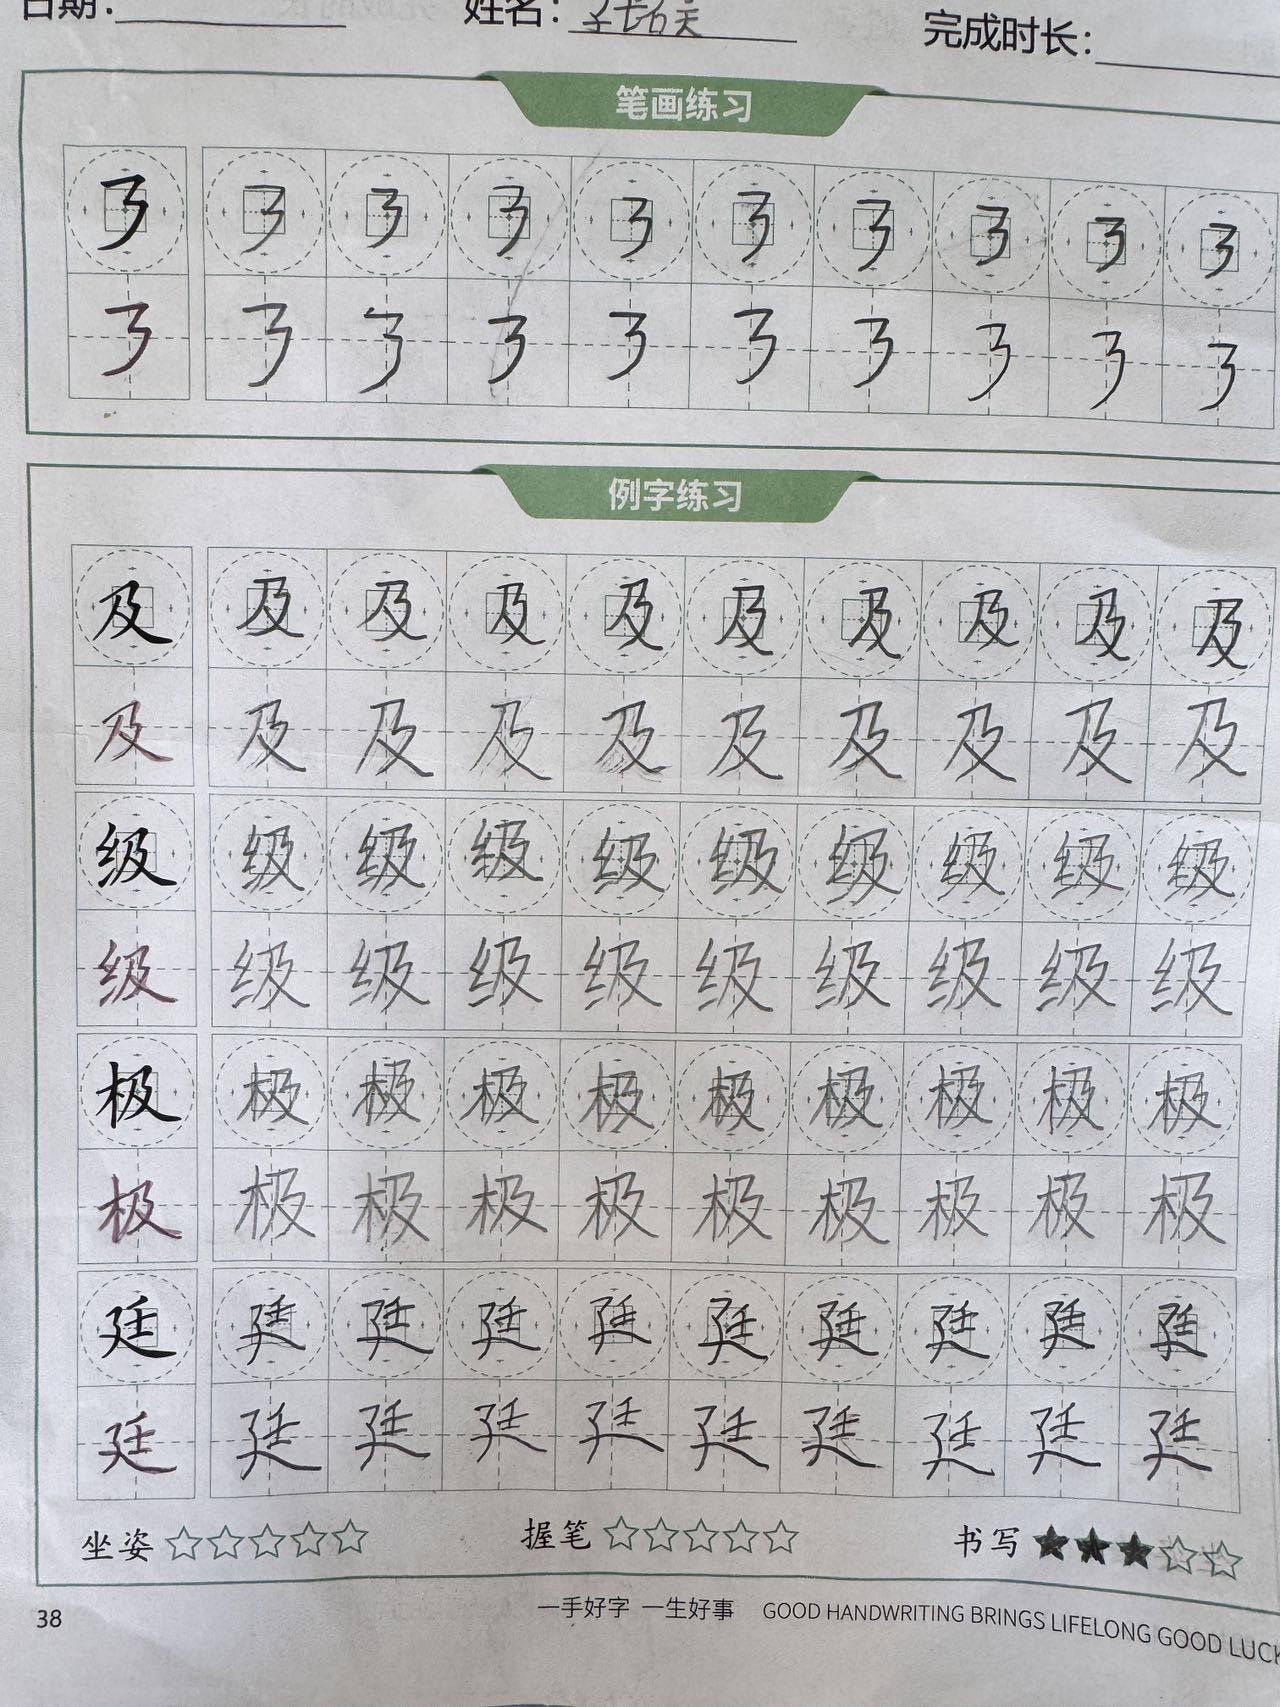 日期： 姓名： 完成时长：
笔画练习
㇋ ㇋ ㇋ ㇋ ㇋ ㇋ ㇋ ㇋ ㇋ ㇋
㇋ ㇋ ㇋ ㇋ ㇋ ㇋ ㇋ ㇋ ㇋ ㇋
例字练习
及 及 及 及 及 及 及 及 及 及
及 及 及 及 及 及 及 及 及 及
级 级 级 级 级 级 级 级 级 级
级 级 级 级 级 级 级 级 级 级
极 极 极 极 极 极 极 极 极 极
极 极 极 极 极 极 极 极 极 极
廷 廷 廷 廷 廷 廷 廷 廷 廷 廷
廷 廷 廷 廷 廷 廷 廷 廷 廷 廷
坐姿☆☆☆☆☆ 握笔☆☆☆☆☆ 书写★★★☆☆
38 一手好字 一生好事 GOOD HANDWRITING BRINGS LIFELONG GOOD LUCK